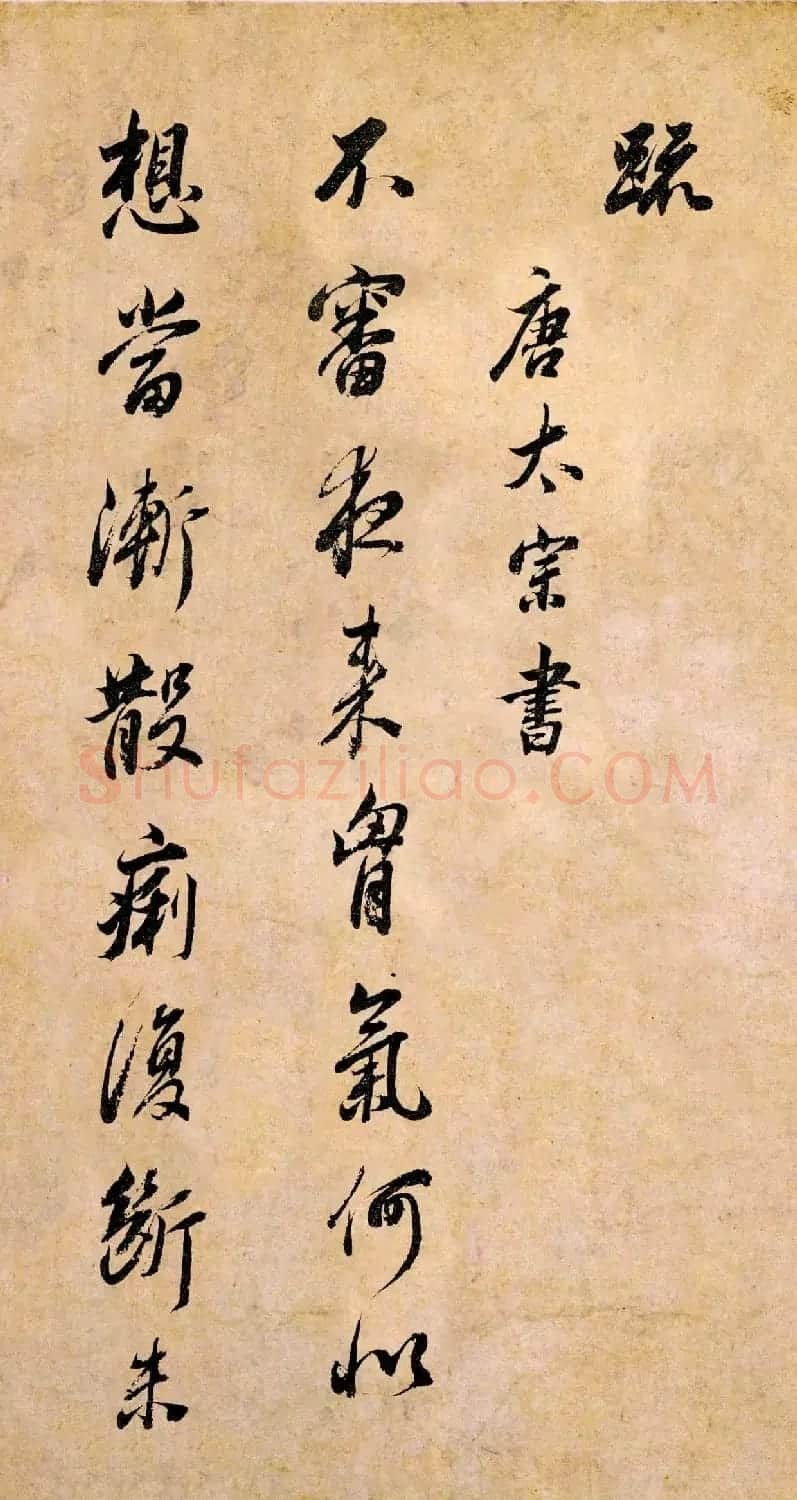 疏
唐太宗書
不審夜來胷氣何似
想當漸散痢復斷未
Shufaziliao.COM